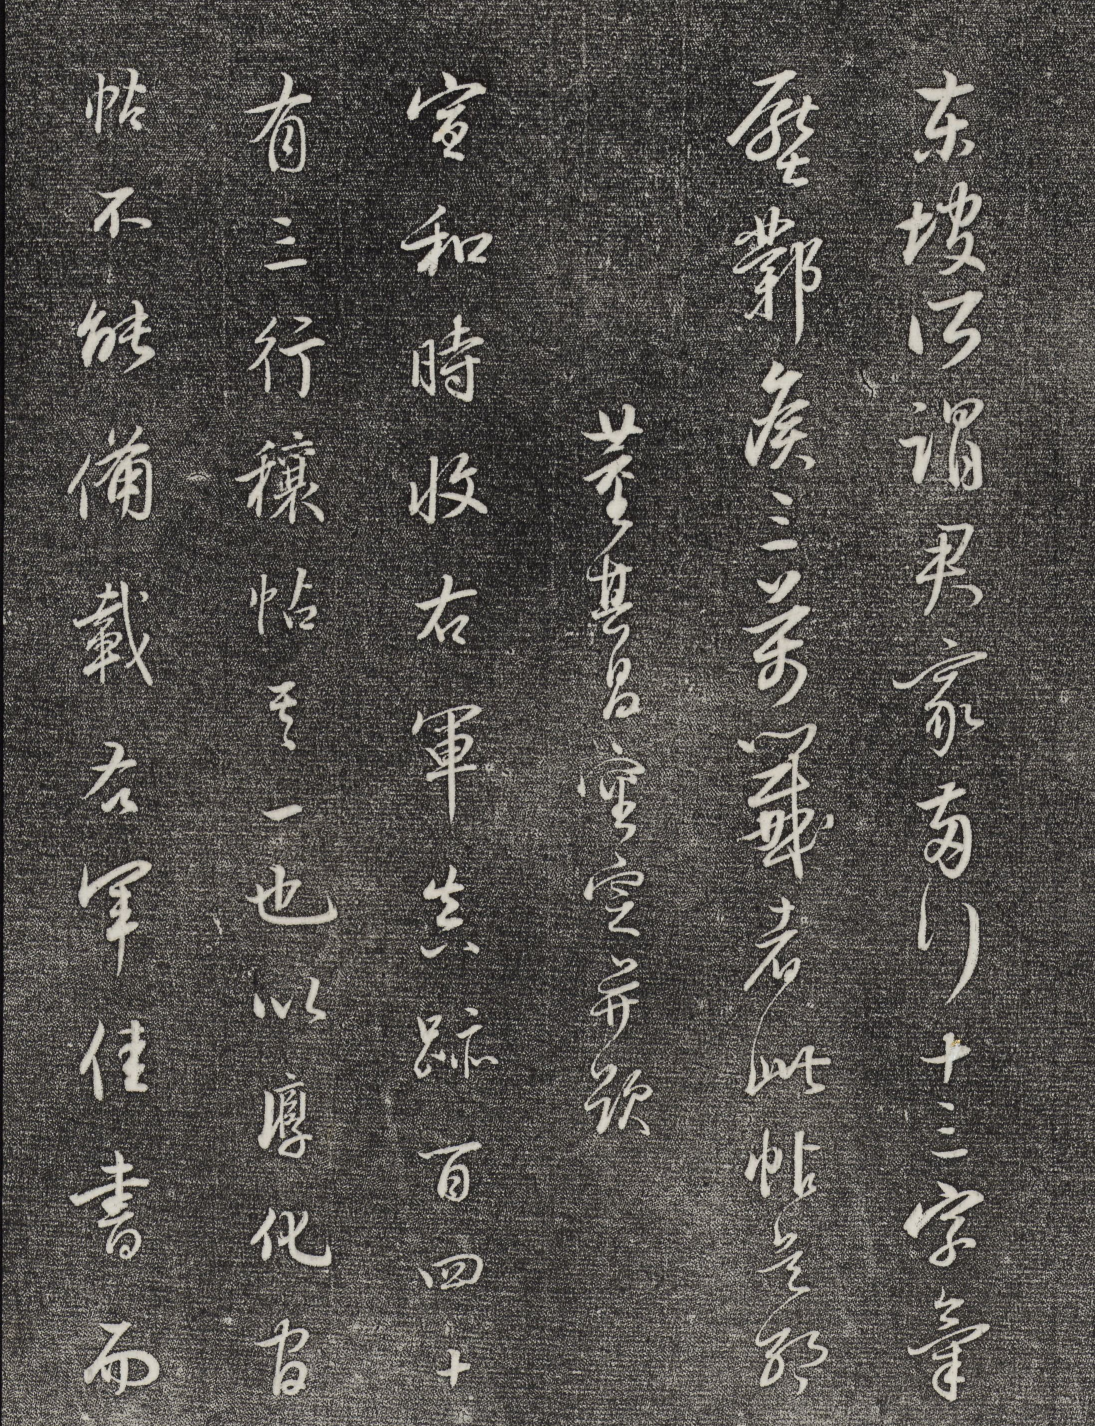 东坡所謂君家两行十三字氣
壓鄴侯三萬籖者此帖是耶
董其昌審定并題
宣和時收右軍真跡百四十
有三行穰帖其一也以淳化官
帖不能備載右軍佳書而